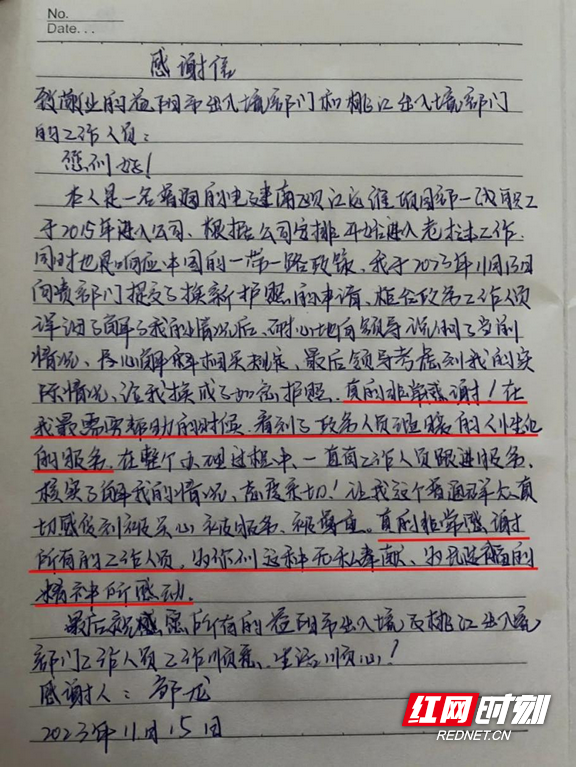 No.
Date. . .
感谢信
致敬业的益阳市出入境部门和桃江出入境部门
的工作人员:
您们好!
本人是一名普通的电建南 江 维 项目部一线职工
于2015年进入公司、根据公司安排开始进入老挝工作.
同时也是响应中国的一带一路政策、我于2023年11月13日
向贵部门提交了换新护照的申请、柜台政务工作人员
详细了解了我的情况后、耐心地向领导说明了我的
情况、 心 解相关规定、最后领导考虑到我的实
际情况、给我换成了加急护照、真的非常感谢!在
我最需要帮助的时候、看到了政务人员温暖的人性化
的服务、在整个办理过程中、一直有工作人员跟进服务、
核实了解我的情况、态度亲切!让我这个普通群众真
切感受到被关心、被服务、被尊重。真的非常感谢
所有的工作人员、为你们这种无私奉献、为民造福的
精神所感动.
最后祝愿所有的益阳市出入境及桃江出入境
部门工作人员工作顺意、生活顺心!
感谢人: 龙
2023年11月15日
红网时刻
REDNET.CN